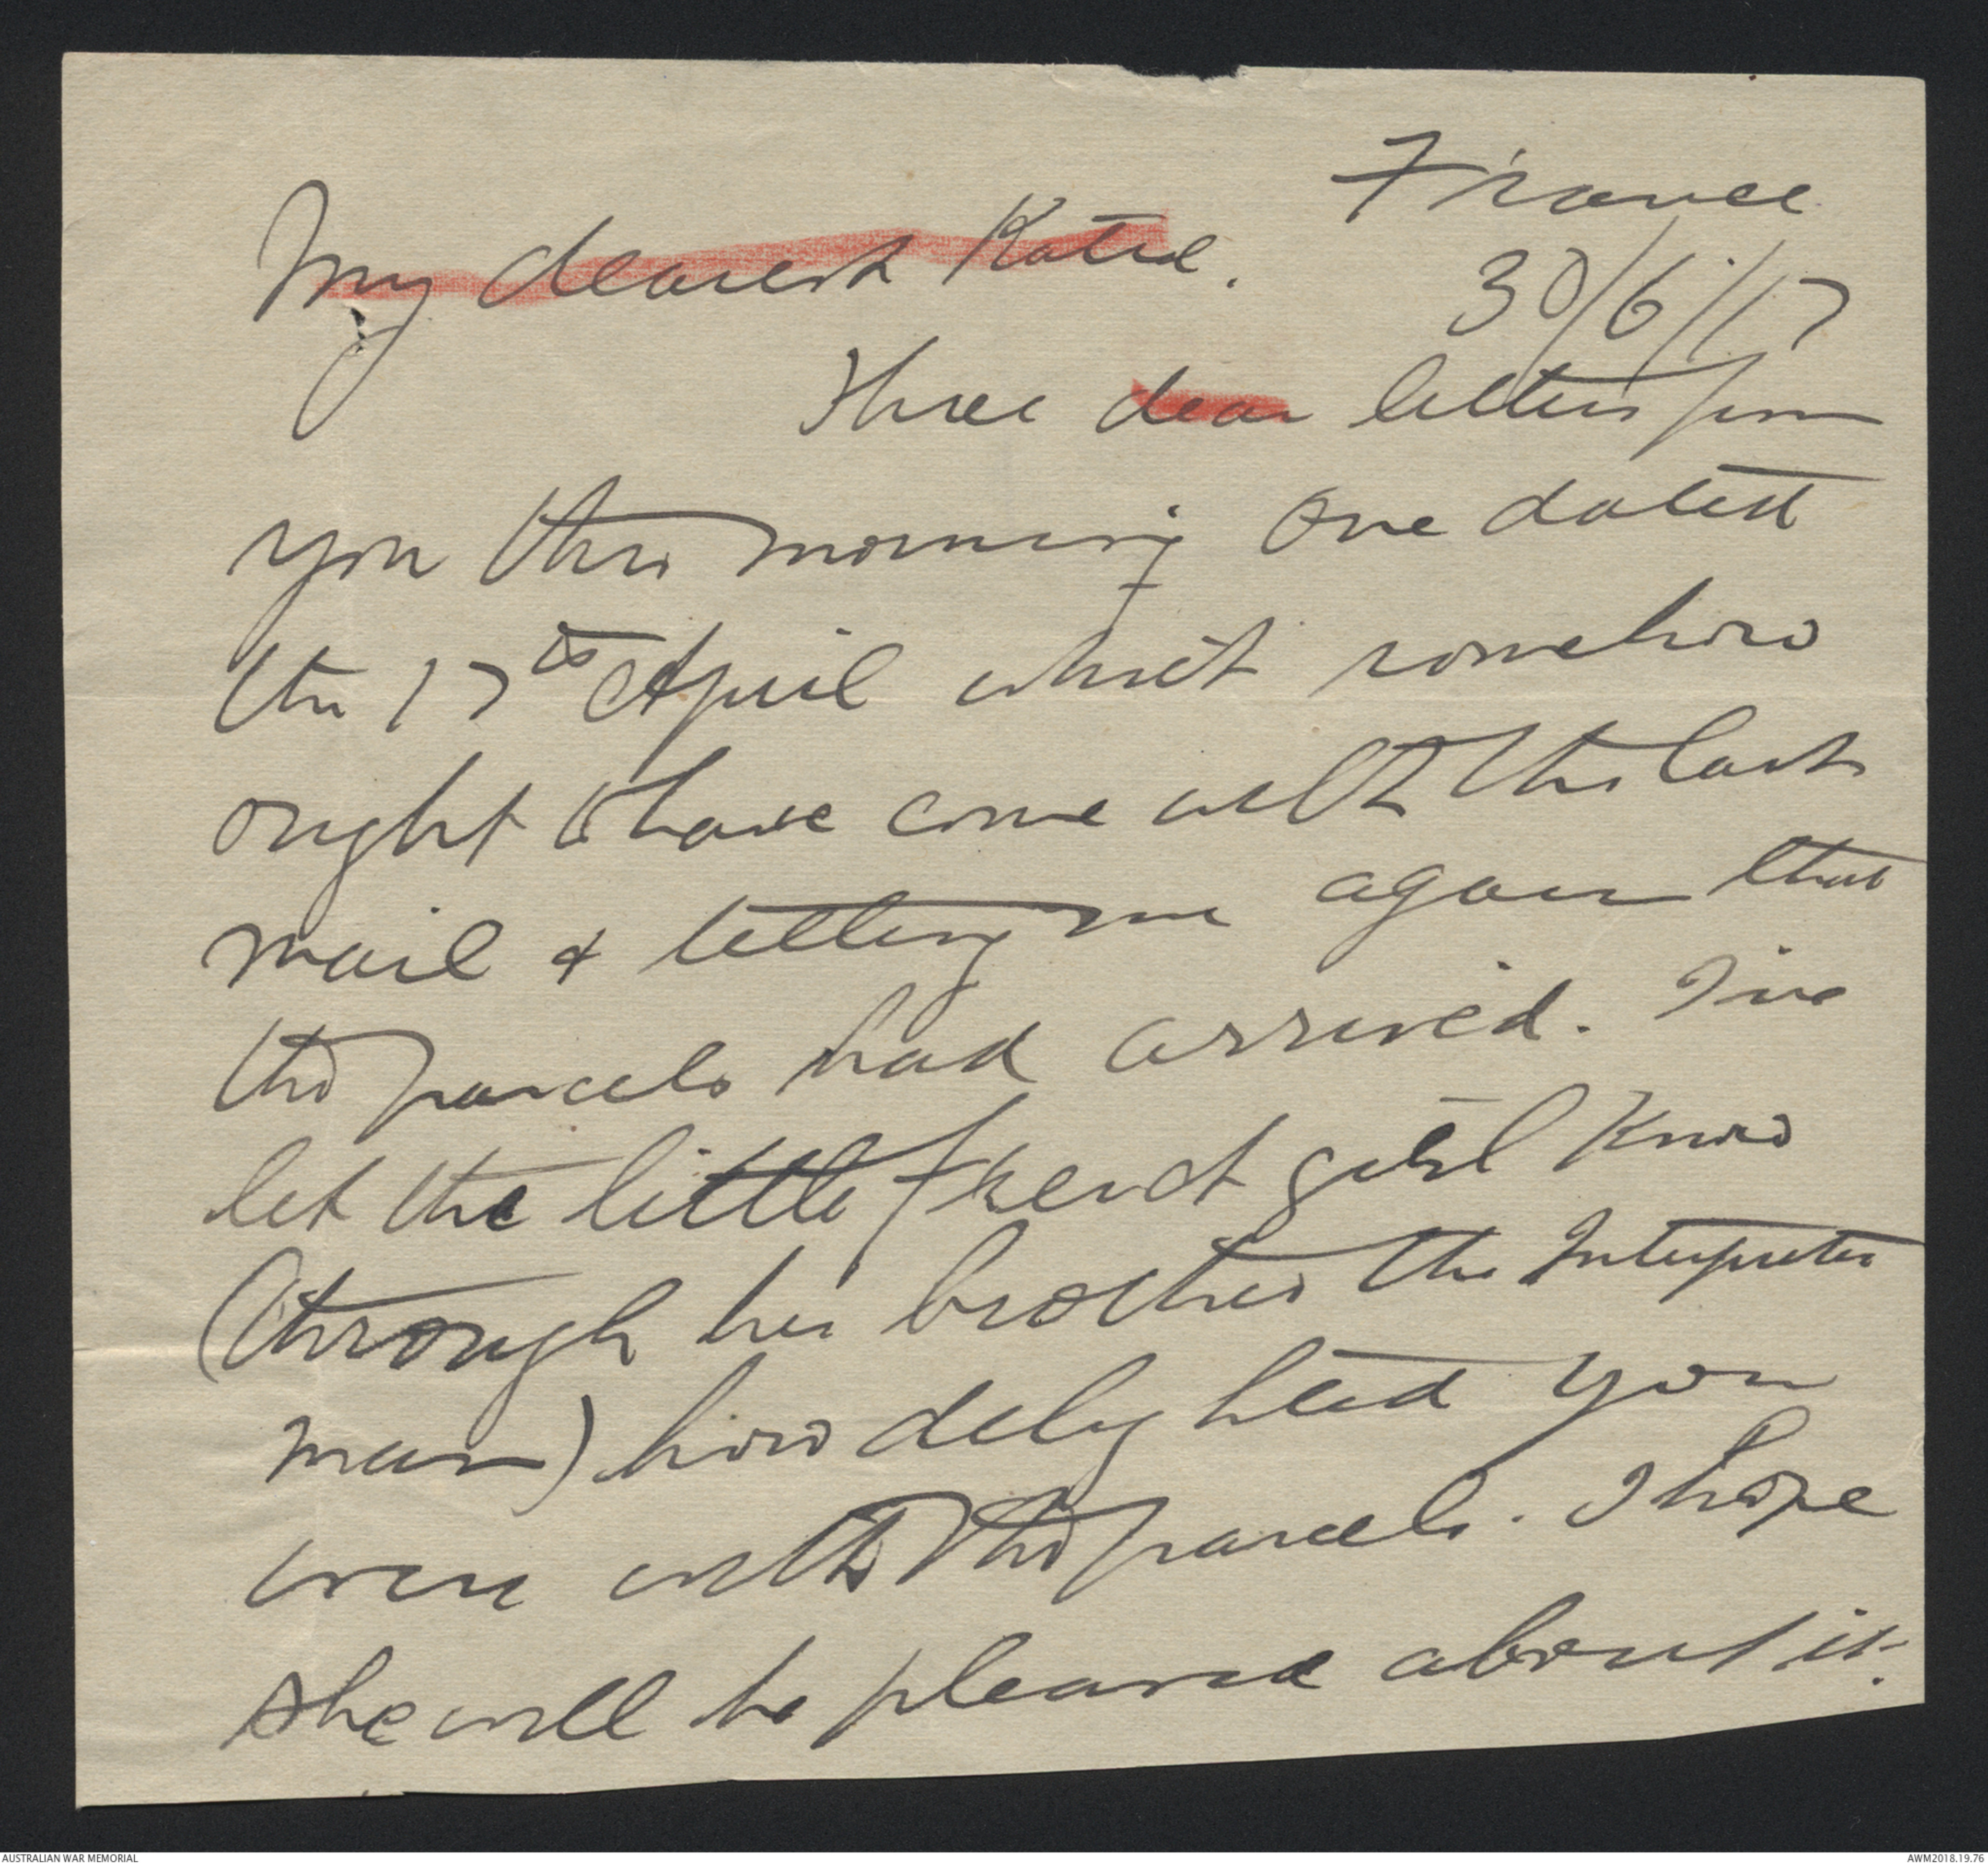 France
My dearest Katie.
30/6/17
Three dear letters from
you this morning One dated
the 17th April which somehow
ought to have come with the last
mail & telling me again that
the parcels had arrived. I've
let the little French girl know
(through her brother the Interpreter
man) how delighted you
were with the parcels. I hope
she will be pleased about it.
AUSTRALIAN WAR MEMORIAL
AWM2018.19.76